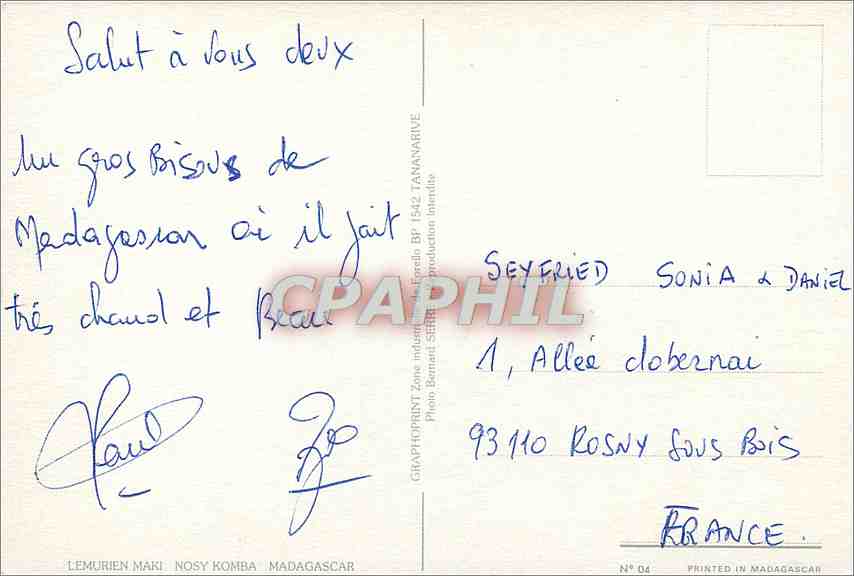 Salut à vous deux
Un gros Bisous de
Madagascar où il fait
très chaud et Beau
Paul
LEMURIEN MAKI NOSY KOMBA MADAGASCAR
GRAPHOPRINT Zone industrielle de Forello BP 1542 TANANARIVE
Photo Bernard SERR reproduction Interdite
CPAPHIL
SEYFRIED SONIA & DANIEL
1, Allée dobernai
93110 ROSNY SOUS BOIS
FRANCE.
N° 04 PRINTED IN MADAGASCAR